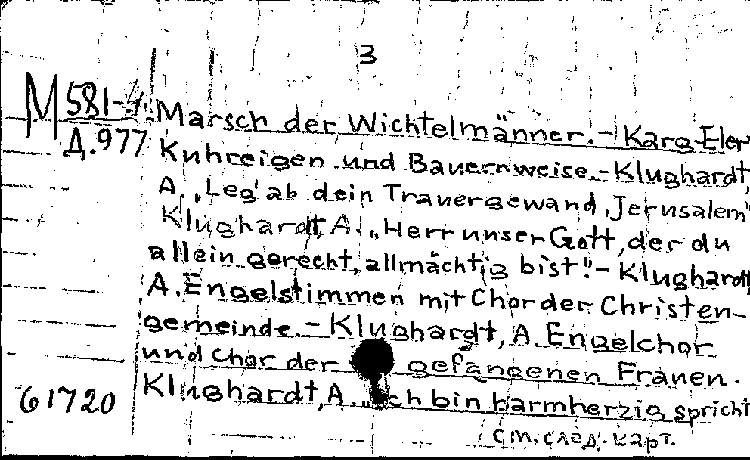 3
M 581-
Д.977
Marsch der Wichtelmänner. - Karg-Elert
Kuhreigen und Bauernweise. - Klughardt,
A. „Leg' ab dein Trauergewand, Jerusalem"
Klughardt, A. „Herr unser Gott, der du
allein gerecht, allmächtig bist!" - Klughardt
A. Engelstimmen mit Chor der Christen-
gemeinde. - Klughardt, A. Engelchor
und Chor der gefangenen Frauen.
Klughardt, A. „Ich bin barmherzig, spricht
61720
см. след. карт.